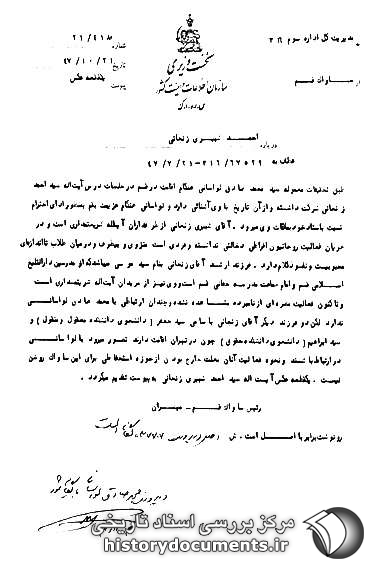 به مدیریت کل اداره سوم ۳۱۶
شماره ۲۱/۲۱۸
نخست وزیری
تاریخ ۴۷/۱۰/۲۱
از ساواک قم
سازمان اطلاعات و امنیت کشور
پیوست یکقطعه عکس
س.ا.و.ا.ک
درباره احمد شبیری زنجانی
عطف به ۳۱۶/۶۷۵۲۹-۴۷/۷/۲۱
طبق تحقیقات معموله سید محمد صادق لواسانی هنگام اقامت در قم در جلسات درس آیت‌اله سید احمد
زنجانی شرکت داشته و از آن تاریخ با وی آشنائی دارد و لواسانی هنگام عزیمت بقم بمنظور ادای احترام
نسبت باستاد خود بملاقات وی میرود. آقای شبیری زنجانی از طرفداران آیت‌اله شریعتمداری است و در
جریان فعالیت روحانیون افراطی دخالتی نداشته و فردی است منزوی و بیطرف و در میان طلاب تا اندازه‌ای
محبوبیت و نفوذ کلام دارد. فرزند ارشد آقای زنجانی بنام سید موسی میباشد که از مدرسین دارالتبلیغ
اسلامی قم و امام جماعت مدرسه فیضیه قم است وی نیز از مریدان آیت‌اله شریعتمداری است
و تاکنون فعالیت مضره‌ای از نامبرده مشاهده نشده و چندان ارتباطی با محمد صادق لواسانی
ندارد لکن دو فرزند دیگر آقای زنجانی باسامی سید جعفر (دانشجوی دانشکده معقول و منقول) و
سید ابراهیم (دانشجوی دانشکده حقوق) چون در تهران اقامت دارند تصور میرود با لواسانی
در ارتباط باشند و نحوه فعالیت آنان بعلت خارج بودن از حوزه استحفاظی برای این ساواک روشن
نیست. یکقطعه عکس آیت‌اله سید احمد شبیری زنجانی به پیوست تقدیم میگردد.
رئیس ساواک قم - مهران
رونوشت برابر با اصل است. ش
مرکز بررسی اسناد تاریخی
historydocuments.ir